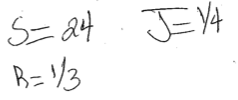 S=24 J=1/4
R=1/3